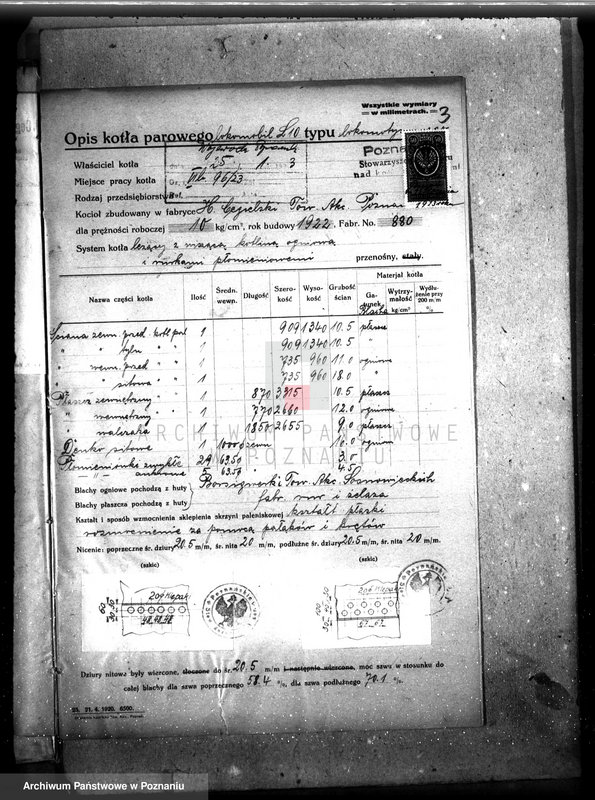 Wszystkie wymiary
w milimetrach.
3
Opis kotła parowego lokomobil L 10 typu
Poznań
Stowarzysze
nad
Właściciel kotła
25 1. 3
Miejsce pracy kotła
III b. 96/23
Rodzaj przedsiębiorstwa
Kocioł zbudowany w fabryce H. Cegielski Tow. Akc. Poznań
dla prężności roboczej 10 kg/cm², rok budowy 1922. Fabr. No. 880
System kotła leżący z
i rurkami płomieniowemi przenośny, stały.
Nazwa części kotła
Ilość
Średn. wewn.
Długość
Szerokość
Wysokość
Grubość ścian
Materjał kotła
Gatunek
Wytrzymałość kg/cm²
Wydłużenie przy 200 m/m %
Ściana zewn. przed. 1 909 1340 10.5 płaszcz
" tyln. " " 1 909 1340 10.5 "
" wewn. przed " " 1 735 960 11.0 ogniowa
" sitowa " " 1 735 960 18.0 "
Płaszcz zewnętrzny 1 870 3315 10.5 płaszcz
" wewnętrzny 1 770 2660 12.0 ogniow
" walczaka 1 1850 2655 9.0 płaszcz
Denko sitowe 1 1000 zewn 16.0 ogniow
Płomieniówki zwykłe 24 63.50 3.0
5 63.50 4.5
Blachy ogniowe pochodzą z huty Borsigwerk i Tow. Akc. Sosnowieckich
Blachy płaszcza pochodzą z huty fabr. rur i żelaza
Kształt i sposób wzmocnienia sklepienia skrzyni paleniskowej kształt płaski
wzmocnienie za pomocą pałąków i
Nicenie: poprzeczne śr. dziury 20.5 m/m, śr. nita 20 m/m, podłużne śr. dziury 20.5 m/m, śr. nita 20 m/m.
(szkic)
(szkic)
Dziury nitowe były wiercone, tłoczone do śr. 20.5 m/m i następnie wiercone, moc szwu w stosunku do
całej blachy dla szwa poprzecznego 58.4 %, dla szwa podłużnego 70.1 %.
21. 6. 1920. 6500.
ARCHIWUM PAŃSTWOWE
W POZNANIU
Archiwum Państwowe w Poznaniu